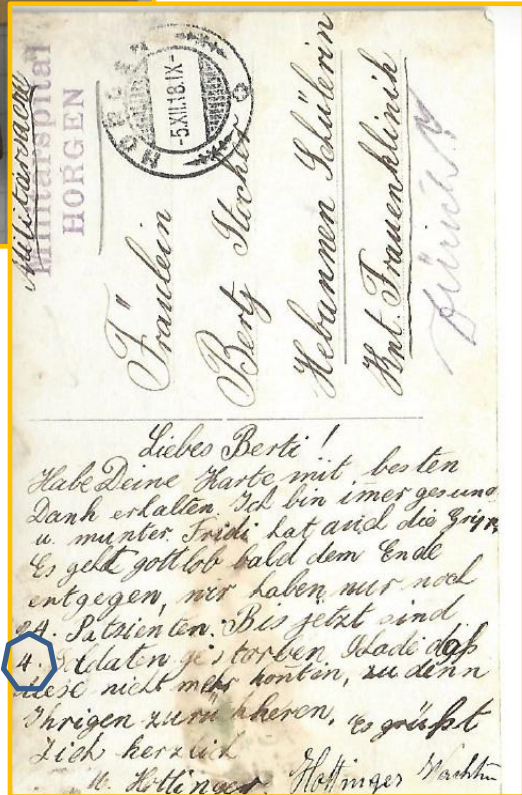 Militärsache
Militärspital
HORGEN
HORGEN
-5.XII.18.IX-
Fräulein
Berty Stocker
Hebannen Schülerin
Knt. Frauenklinik
Zürich
Liebes Berti!
Habe Deine Karte mit besten
Dank erhalten. Ich bin imer gesund
u. munter. Fridi hat auch die Gripp.
Es geht gottlob bald dem Ende
entgegen, wir haben nur noch
24. Patzienten. Bis jetzt sind
4. Soldaten gestorben. Schade daß
diese nicht mehr konten, zu denn
Ihrigen zurükheren. Es grüßt
Dich herzlich
Hottinger Hottinger